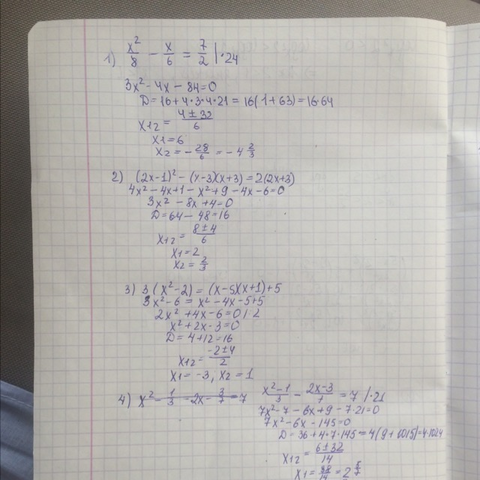 1) x²/8 − x/6 = 7/2 | · 24
3x² − 4x − 84 = 0
D = 16 + 4·3·4·21 = 16(1 + 63) = 16·64
x₁,₂ = (4 ± 32)/6
x₁ = 6
x₂ = −28/6 = −4 2/3
2) (2x−1)² − (x−3)(x+3) = 2(2x+3)
4x² − 4x + 1 − x² + 9 − 4x − 6 = 0
3x² − 8x + 4 = 0
D = 64 − 48 = 16
x₁,₂ = (8 ± 4)/6
x₁ = 2
x₂ = 2/3
3) 3(x²−2) = (x−5)(x+1) + 5
3x² − 6 = x² − 4x − 5 + 5
2x² + 4x − 6 = 0 | 2
x² + 2x − 3 = 0
D = 4 + 12 = 16
x₁,₂ = (−2 ± 4)/2
x₁ = −3, x₂ = 1
4) (x²−1)/3 − (2x−3)/7 = 7 | · 21
7x² − 7 − 6x + 9 − 7·21 = 0
7x² − 6x − 145 = 0
D = 36 + 4·7·145 = 4(9 + 1015) = 4·1024
x₁,₂ = (6 ± 32)/14
x₁ = 38/14 = 2 5/7